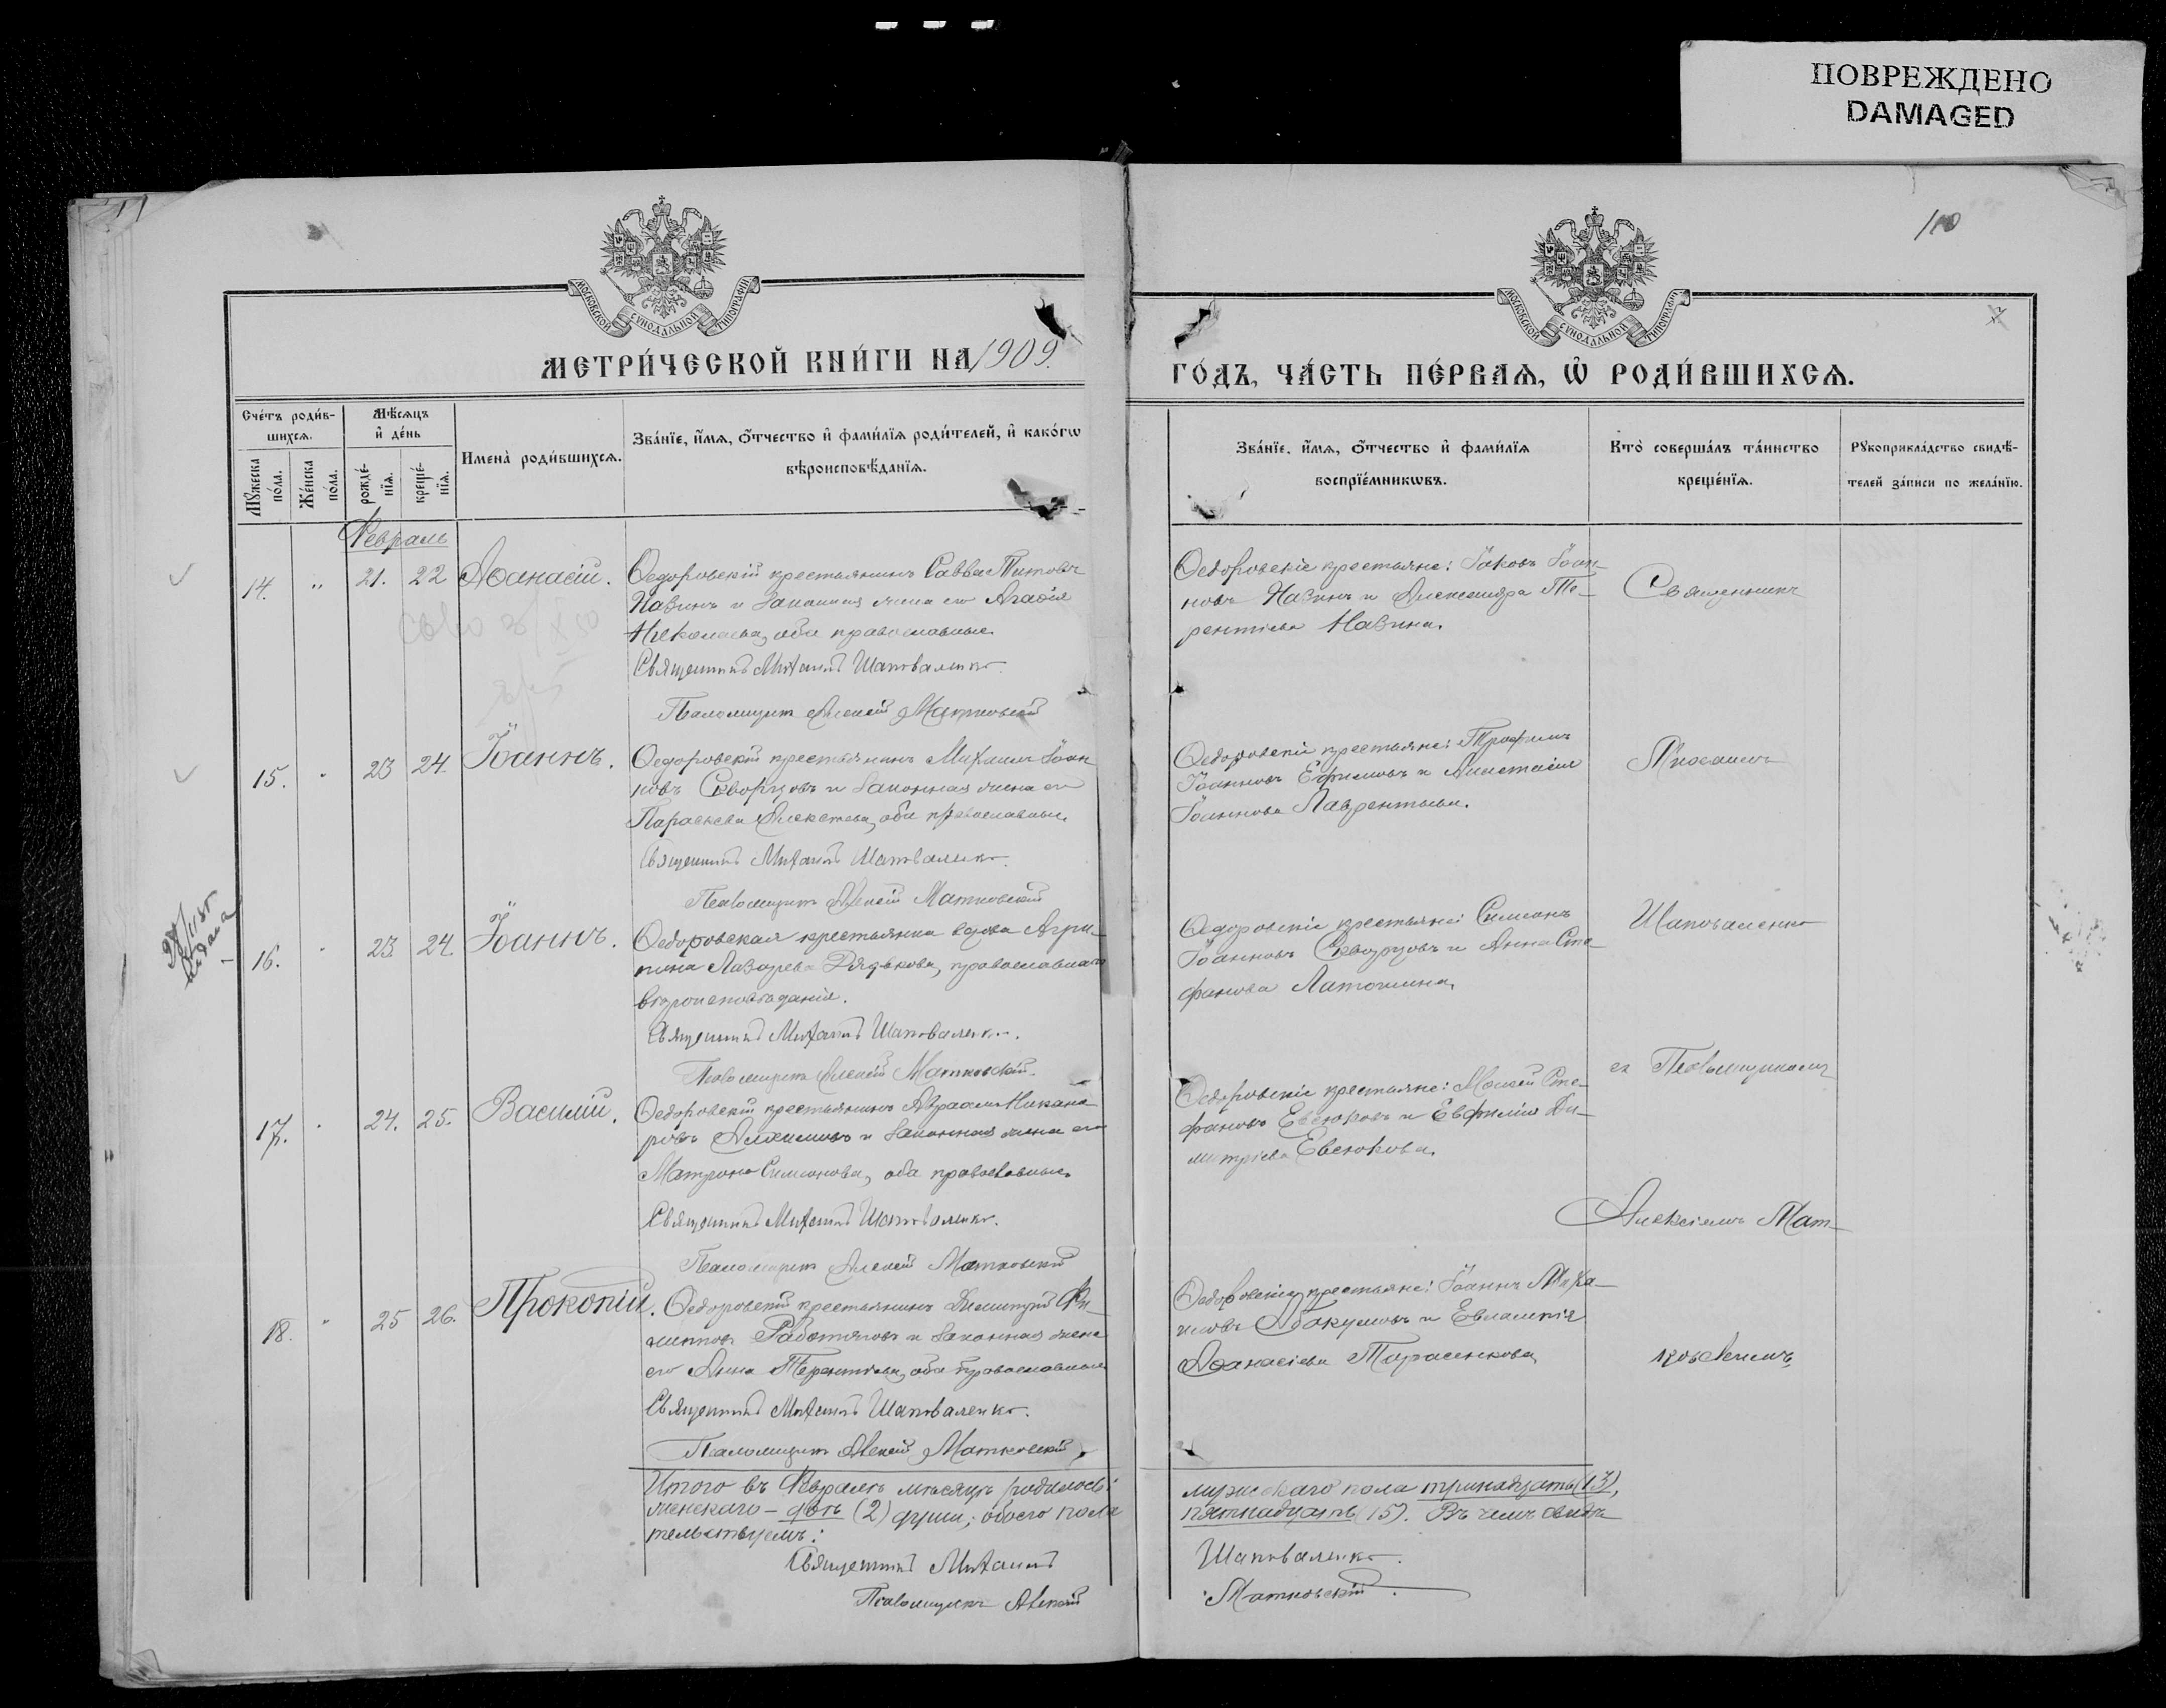 ПОВРЕЖДЕНО
DAMAGED
110
МОСКОВСКОЙ СУНОДАЛЬНОЙ ТИПОГРАФІИ
МОСКОВСКОЙ СУНОДАЛЬНОЙ ТИПОГРАФІИ
МЕТРИ́ЧЕСКОЙ КНИ́ГИ НА 1909.
ГО́ДЪ, ЧА́СТЬ ПЕ́РВАѦ, Ѡ҆ РОДИ́ВШИХСѦ.
Сче́тъ роди́в-
шихсѧ.
Мꙋ́жеска по́ла.
Же́нска по́ла.
Мѣ́сѧцъ и҆ де́нь
рожде́-нїѧ.
креще́-нїѧ.
Имена̀ роди́вшихсѧ.
Зва́нїе, и҆́мѧ, ѻ҆́тчество и҆ фами́лїѧ роди́телей, и҆ како́гѡ
вѣроисповѣ́данїѧ.
Зва́нїе, и҆́мѧ, ѻ҆́тчество и҆ фами́лїѧ
воспрїе́мникѡвъ.
Кто̀ соверша́лъ та́инство
креще́нїѧ.
Рꙋкоприкла́дство свидѣ́-
телей за́писи по жела́нїю.
Февраль
14. " 21. 22 Аѳанасій.
Ѳедоровскій крестьянинъ Савва Титовъ
Назинъ и законная жена его Агафія
Николаева, оба православные.
Священникъ Михаилъ Шаповаленко.
Псаломщикъ Алексій Матковскій
Ѳедоровскіе крестьяне: Іаковъ Іоан-
новъ Назинъ и Александра Те-
рентіева Назина.
Священникъ
15. " 23 24. Іоаннъ.
Ѳедоровскій крестьянинъ Михаилъ Іоан
новъ Скворцовъ и законная жена его
Параскева Алексѣева, оба православные.
Священникъ Михаилъ Шаповаленко.
Псаломщикъ Алексій Матковскій
Ѳедоровскіе крестьяне: Трофимъ
Іоанновъ Ефимовъ и Анастасія
Іоаннова Лаврентьева.
Михаилъ
16. " 23. 24. Іоаннъ.
Ѳедоровская крестьянка вдова Агри-
пина Лазарева Дядькова, православнаго
вѣроисповѣданія.
Священникъ Михаилъ Шаповаленко.
Псаломщикъ Алексій Матковскій.
Ѳедоровскіе крестьяне: Симеонъ
Іоанновъ Скворцовъ и Анна Сте-
фанова Латошина.
Шаповаленко
17. " 24. 25. Василій.
Ѳедоровскій крестьянинъ Авраамъ Никано
ровъ Алхимовъ и законная жена его
Матрона Симеонова, оба православные.
Священникъ Михаилъ Шаповаленко.
Псаломщикъ Алексій Матковскій
Ѳедоровскіе крестьяне: Моисей Сте-
фановъ Евсюковъ и Евфимія Ди-
митріева Евсюкова.
съ Псаломщикомъ
Алексіемъ Мат-
18. " 25 26. Прокопій.
Ѳедоровскій крестьянинъ Димитрій Фи-
липповъ Работяговъ и законная жена
его Анна Терентіева, оба православные
Священникъ Михаилъ Шаповаленко.
Псаломщикъ Алексій Матковскій
Ѳедоровскіе крестьяне: Іоаннъ Миха-
иловъ Абакумовъ и Евлампія
Аѳанасіева Тарасенкова,
ковскимъ.
Итого въ Февралѣ мѣсяцѣ родилось:
мужескаго пола тринадцать (13),
женскаго – двѣ (2) души; обоего пола
пятнадцать (15). Въ чемъ свидѣ-
тельствуемъ:
Священникъ Михаилъ
Шаповаленко.
Псаломщикъ Алексій
Матковскій.